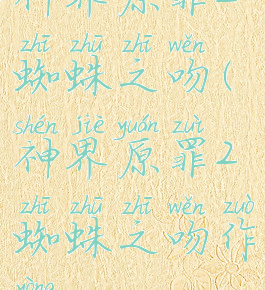 神界原罪2
zhī zhū zhī wěn
蜘蛛之吻(
shén jiè yuán zuì
神界原罪2
zhī zhū zhī wěn zuò
蜘蛛之吻作
yòng